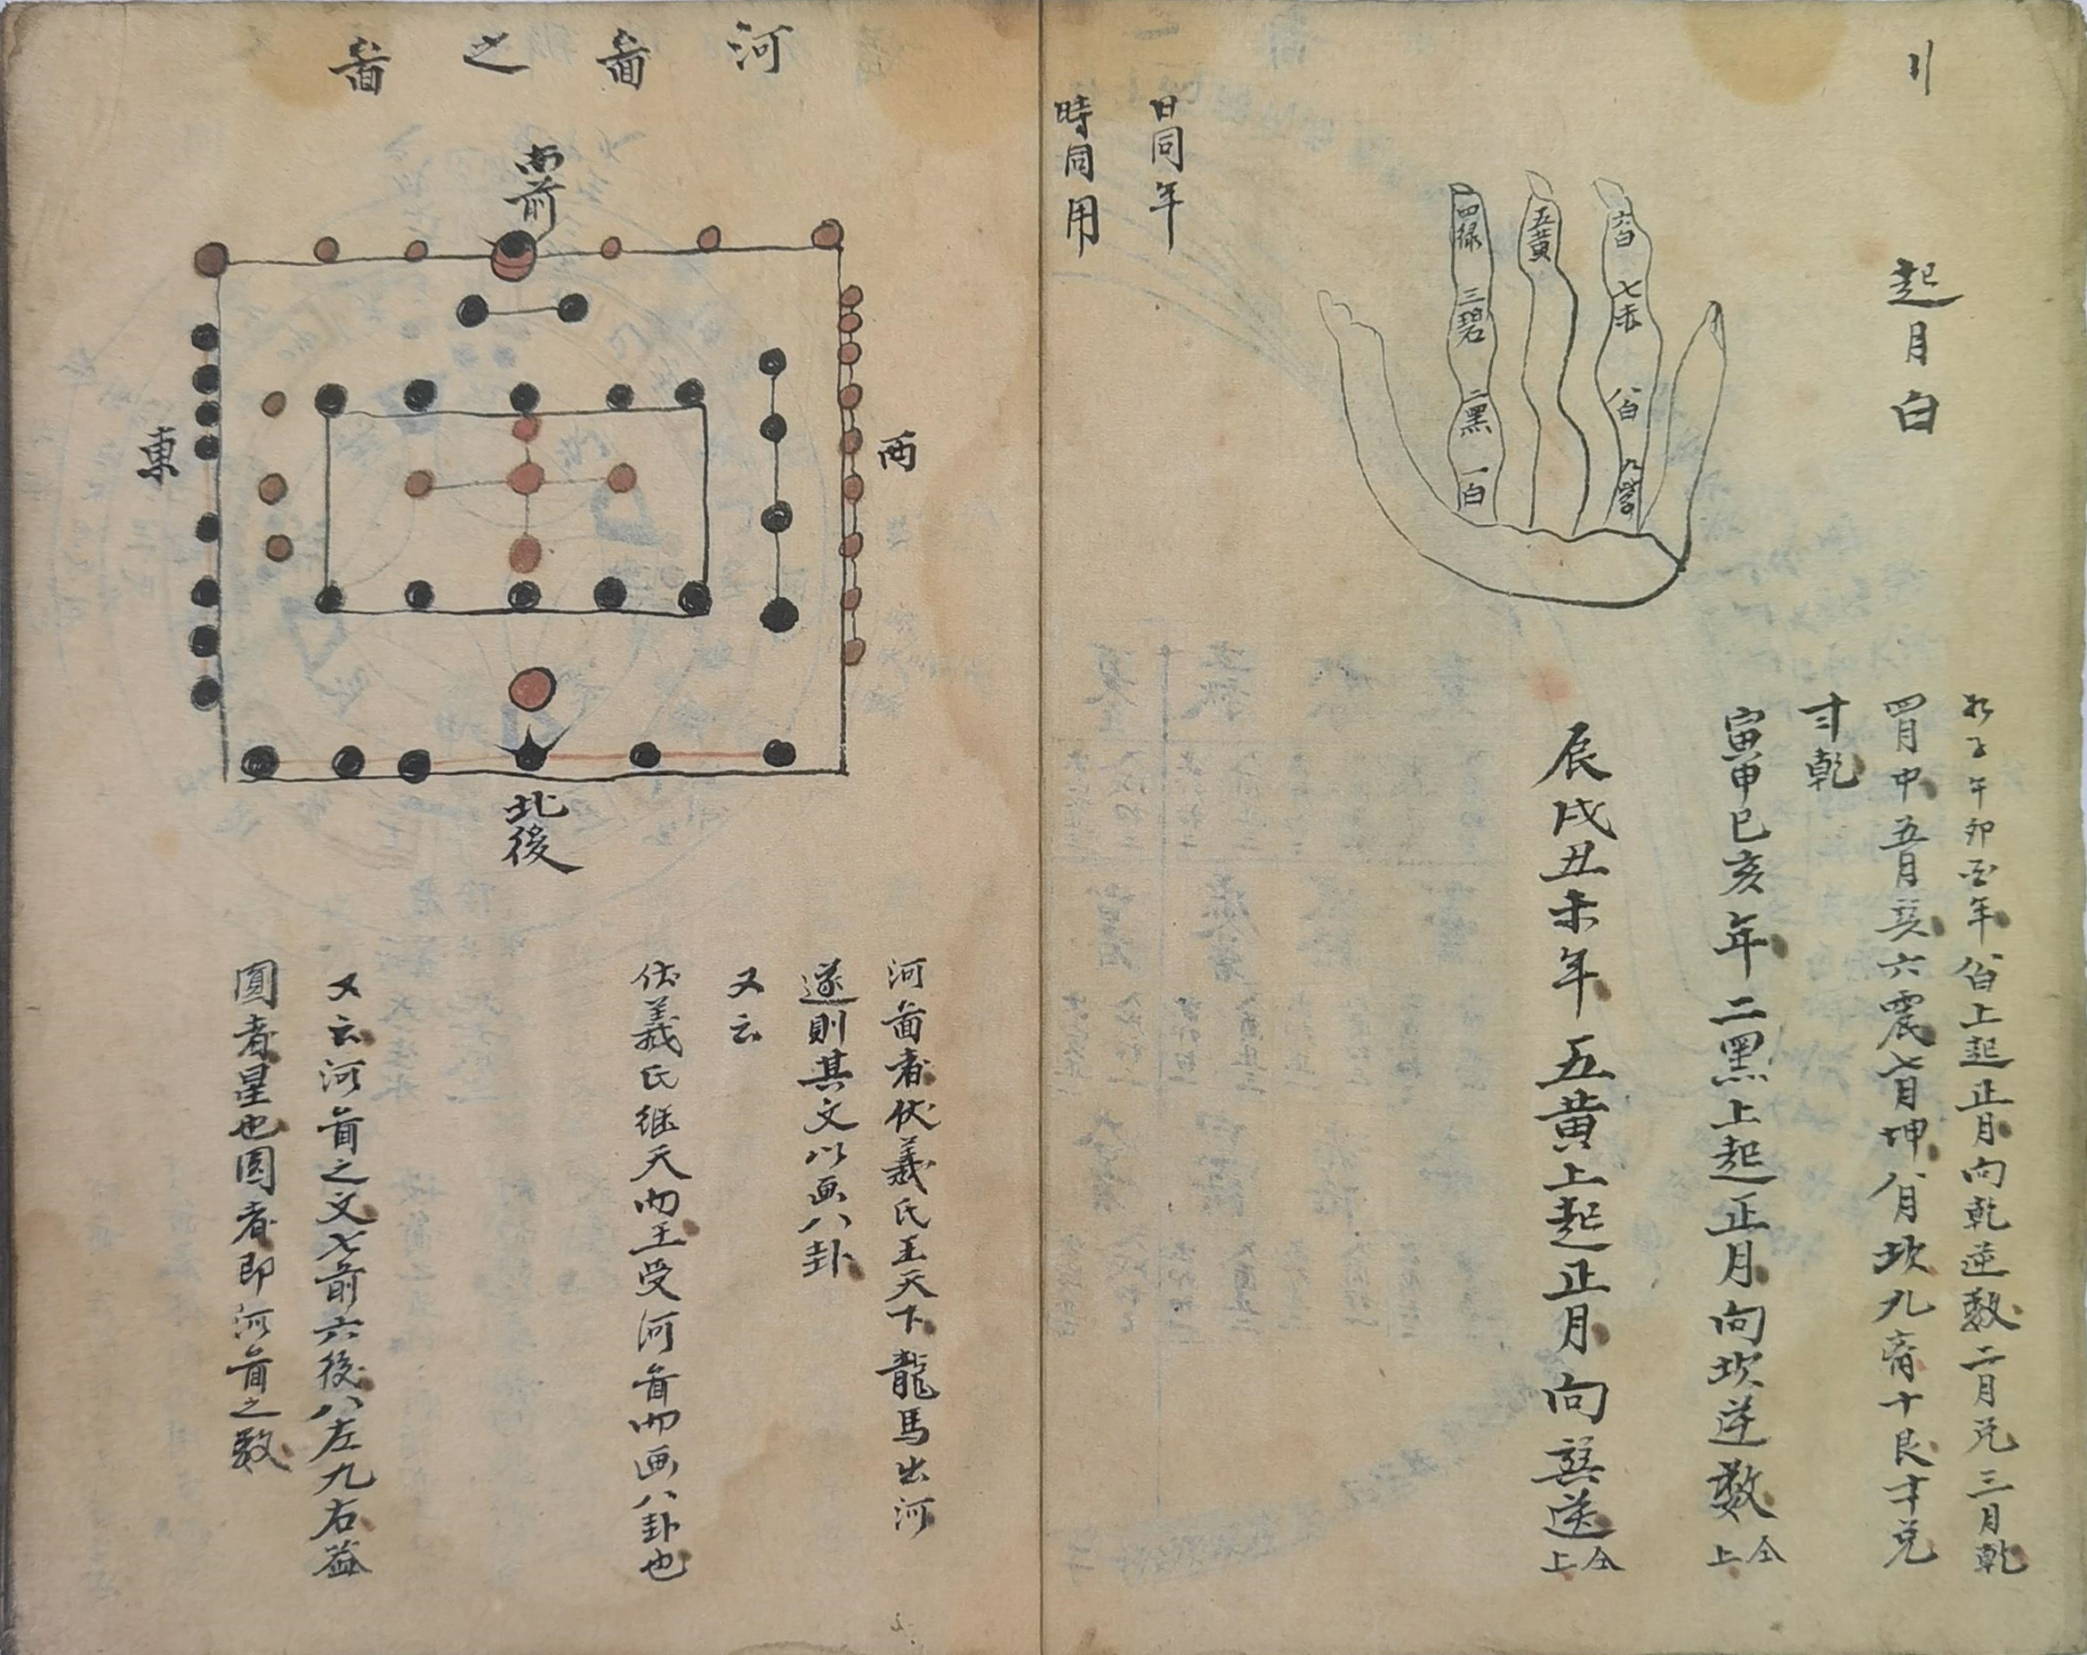 起月白
六白
七赤
八白
九紫
五黄
四绿
三碧
二黑
一白
子午卯酉年八白上起正月向乾逆数二月兑三月乾
四月中五月巽六震七月坤八月坎九离十艮十兑
乾
寅申巳亥年二黑上起正月向坎逆数仝上
辰戌丑未年五黄上起正月向巽逆仝上
日同年
時同用
河啚之啚
南前
東
西
北後
河啚者伏羲氏王天下龍馬出河
遂則其文以画八卦
又云
伏羲氏继天而王受河啚而画八卦也
又云河啚之文七前六後八左九右
圓者星也圓者即河啚之数